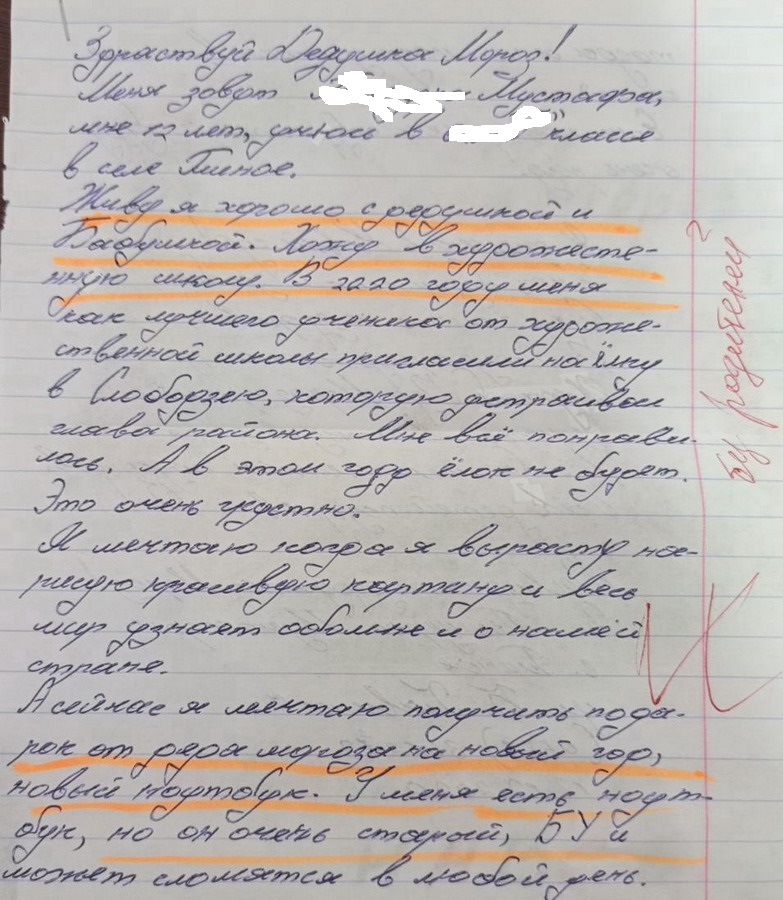 Здраствуй Дедушка Мороз!
Меня зовут Мустафа,
мне 12 лет, учюсь в классе
в селе
Живу я хорошо с дедушкой и
Бабушкой. Хожу в художестве-
нную школу. В 2020 году меня
как лучшего ученика от художе-
ственной школы пригласили на ёлку
в Слободзею, которую устраивал
глава района. Мне всё понрави-
лось. А в этом году ёлок не будет.
Это очень грустно.
Я мечтаю когда я вырасту на-
рисую красивую картину и весь
мир узнает обо мне и о нашей
стране.
А сейчас я мечтаю получить пода-
рок от деда мороза на новый год,
новый ноутбук. У меня есть ноут-
бук, но он очень старый, БУ и
может сломатся в любой день.
бу родителей?